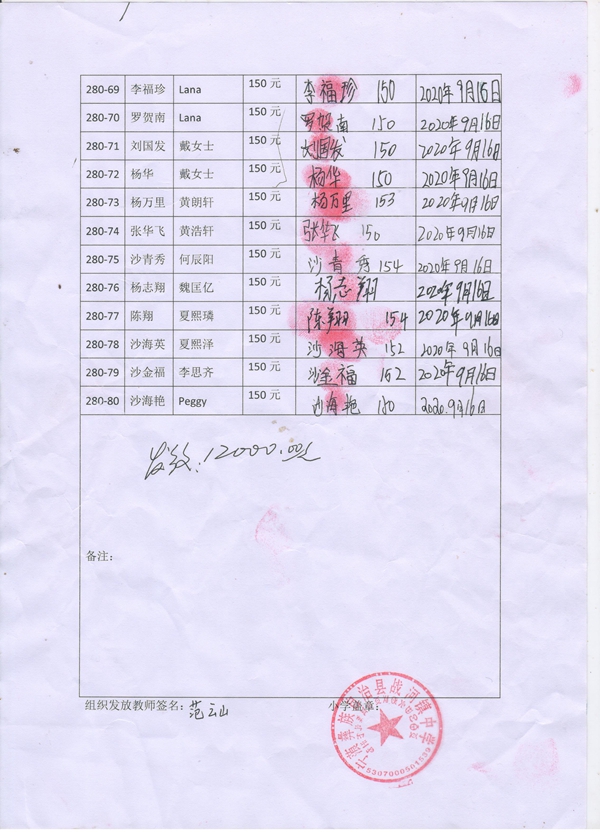 280-69 李福珍 Lana 150 元 李福珍 150 2020年9月16日
280-70 罗贺南 Lana 150 元 罗贺南 150 2020年9月16日
280-71 刘国发 戴女士 150 元 刘国发 150 2020年9月16日
280-72 杨华 戴女士 150 元 杨华 150 2020年9月16日
280-73 杨万里 黄朗轩 150 元 杨万里 153 2020年9月16日
280-74 张华飞 黄浩轩 150 元 张华飞 150 2020年9月16日
280-75 沙青秀 何辰阳 150 元 沙青秀 154 2020年9月16日
280-76 杨志翔 魏匡亿 150 元 杨志翔 2020年9月16日
280-77 陈翔 夏熙璘 150 元 陈翔 154 2020年9月16日
280-78 沙海英 夏熙泽 150 元 沙海英 152 2020年9月16日
280-79 沙金福 李思齐 150 元 沙金福 152 2020年9月16日
280-80 沙海艳 Peggy 150 元 沙海艳 150 2020.9月16日
发放:12000.00元
备注:
组织发放教师签名: 范云山 小学盖章:
宁蒗彝族自治县战河镇中学